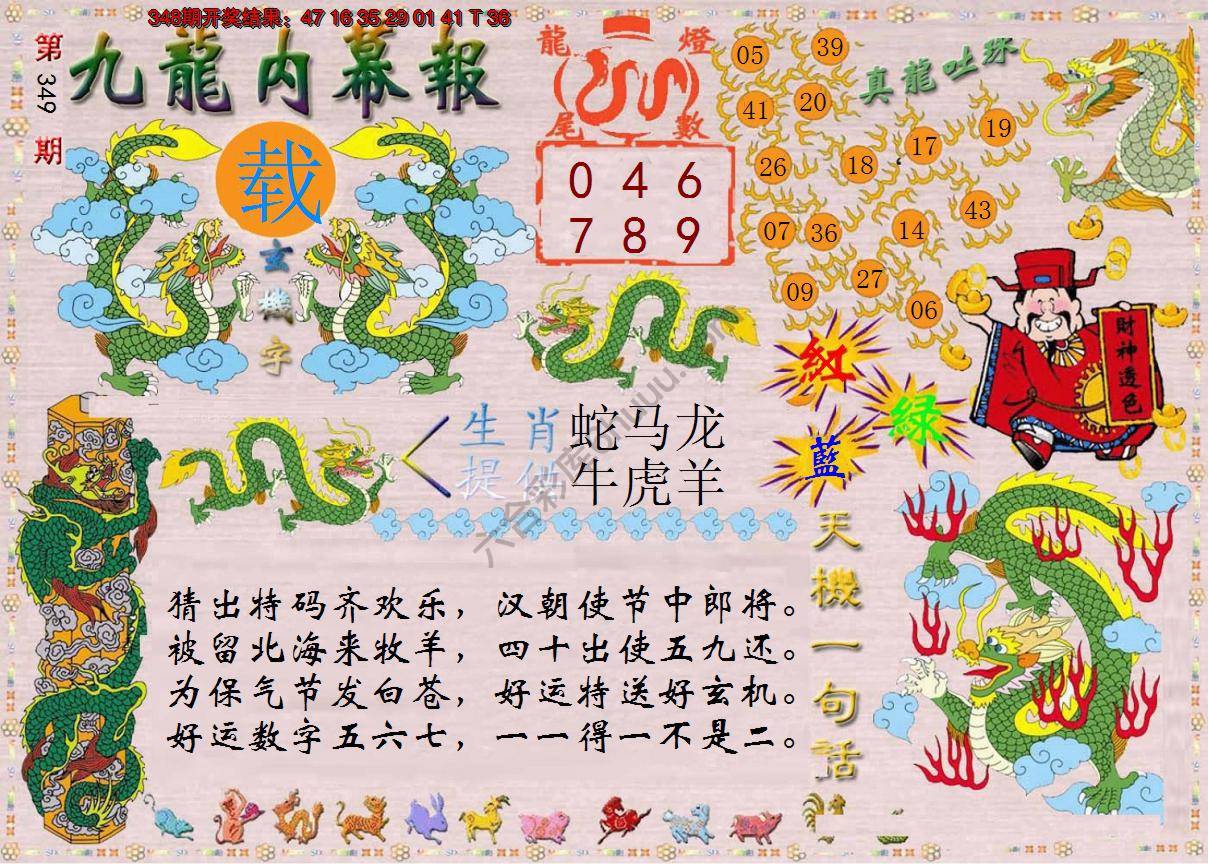 348期开奖结果：47 16 35 29 01 41 T 36
第349期
九龍内幕報
载
玄機字
龍燈
尾數
0 4 6
7 8 9
真龍吐珠
05
39
41
20
19
17
26
18
43
07
36
14
27
09
06
財神透色
紅
綠
藍
生肖
提供
蛇马龙
牛虎羊
天機一句话
猜出特码齐欢乐，汉朝使节中郎将。
被留北海来牧羊，四十出使五九还。
为保气节发白苍，好运特送好玄机。
好运数字五六七，一一得一不是二。